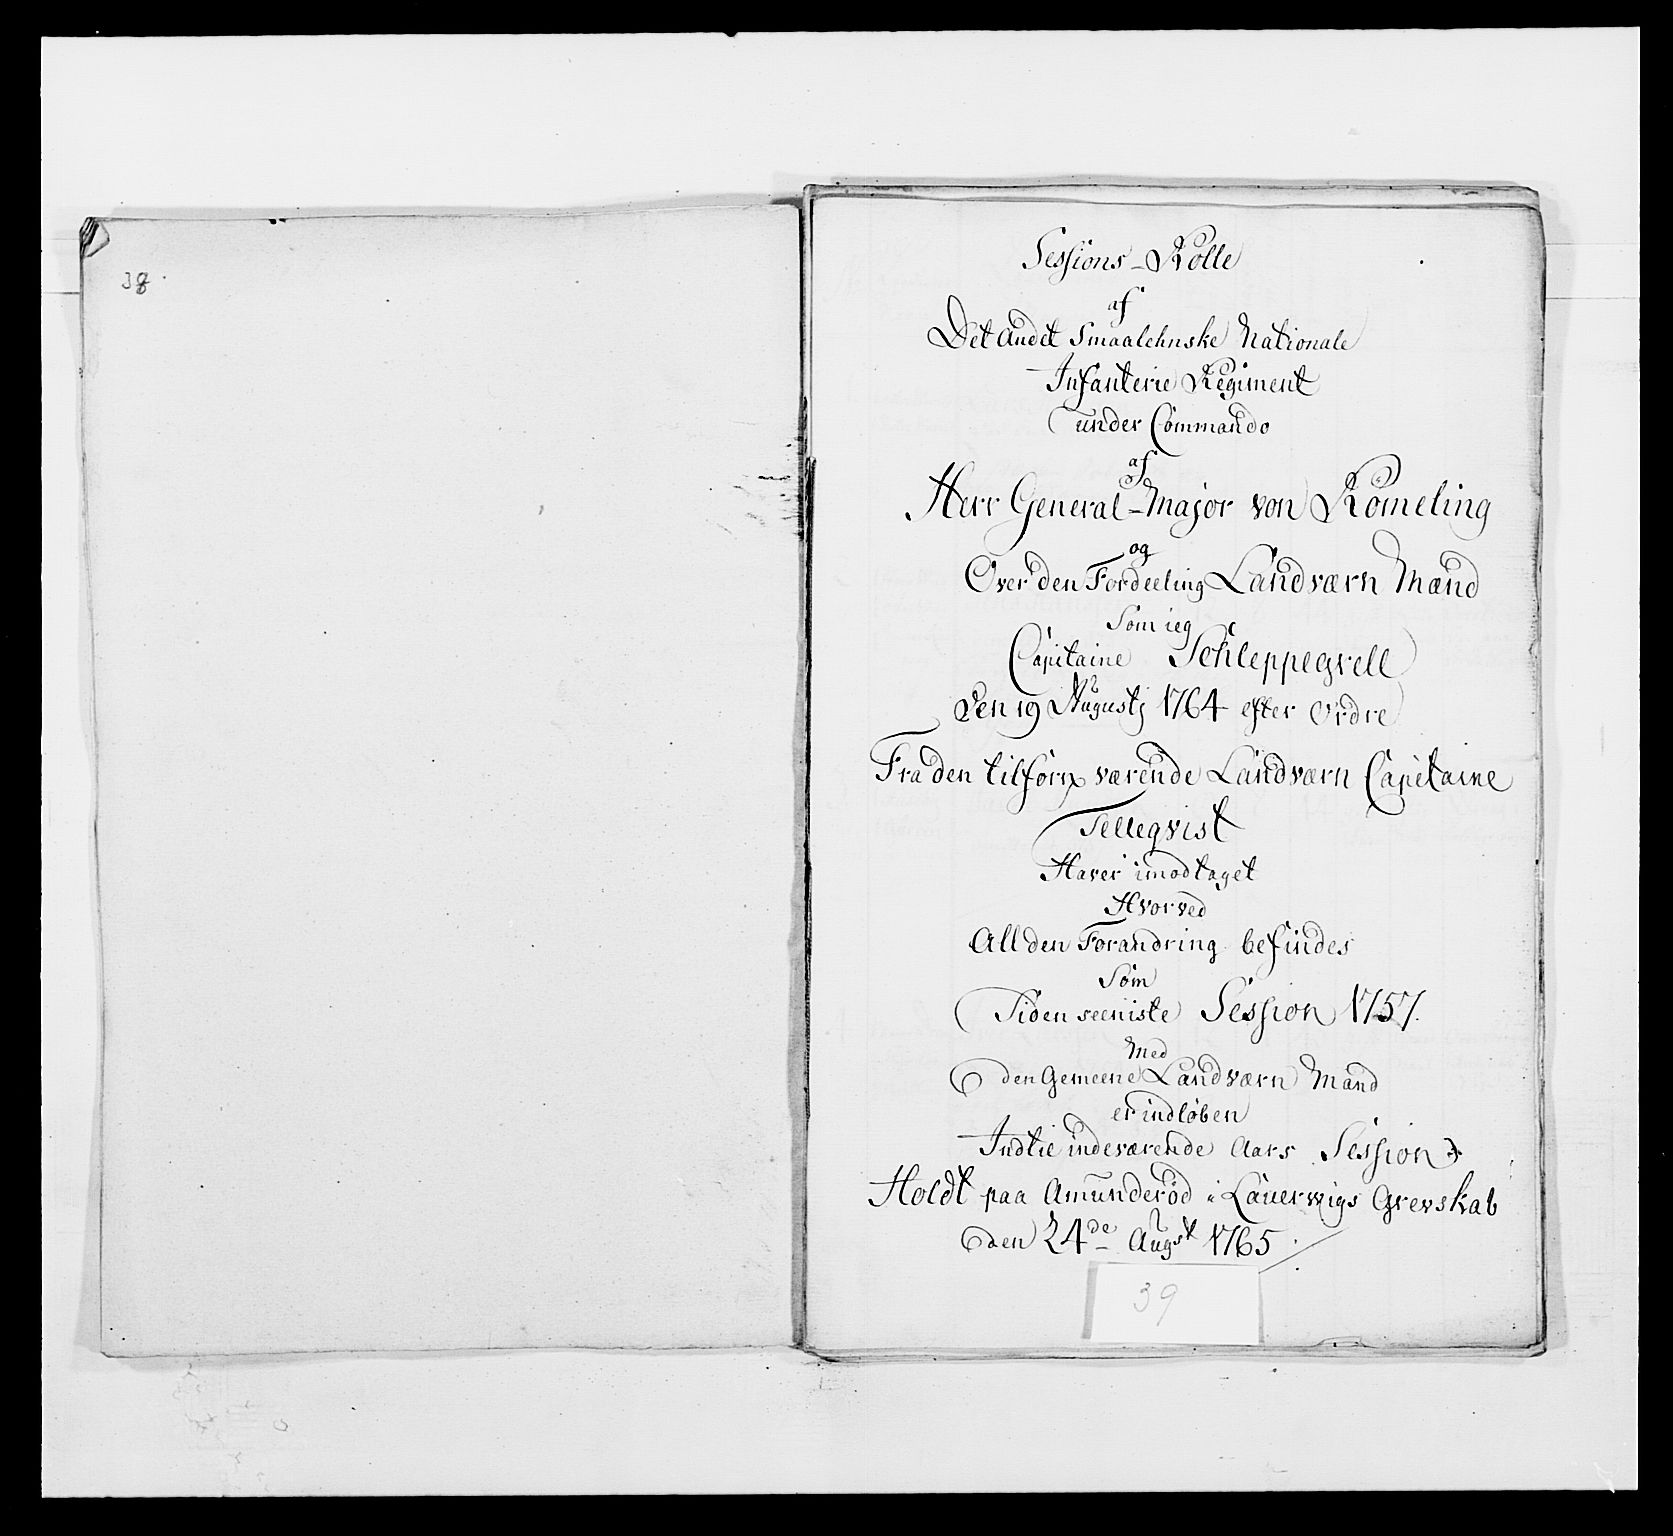 38
Sessions-Rolle
af
Det Andet Smaalehnske Nationale
Infanterie Regiment
under Commando
af
Herr General-Major von Römeling
og
Over den Fordeeling Landværn Mænd
Som ieg
Capitaine Schleppegrell
Den 19 Augustj 1764 efter Ordre
Fra den tilforn værende Landværn Capitaine
Tellegvist
Haver imodtaget
Hvorved
All den Forandring befindes
Som
Siden seeniste Session 1757.
Med
den Gemeene Landværn Mand
er indløben
Indtil indeværende Aars Session
Holdt paa Amunderød i Lauerwigs Grevskab
den 24de Augst 1765
39